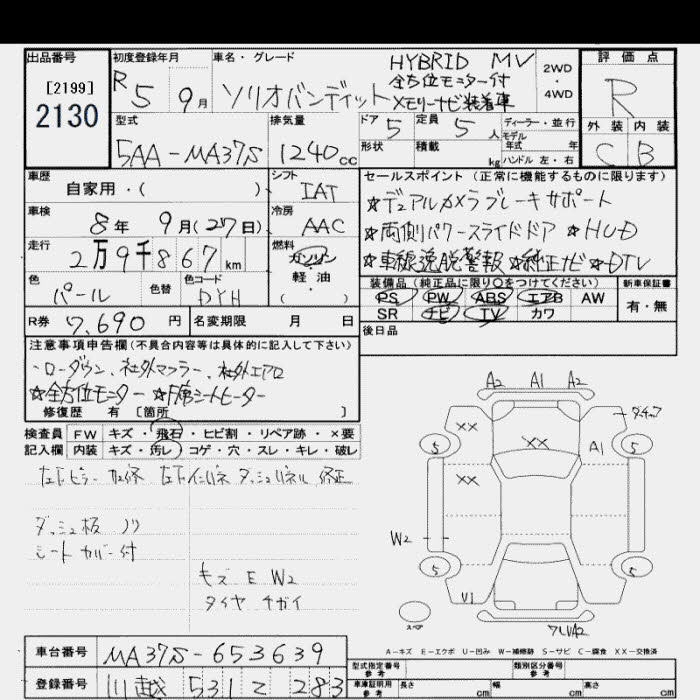 出品番号
[2199]
2130
初度登録年月
R5 9月
車名・グレード
HYBRID MV
全方位モニター付
ソリオバンディット メモリーナビ装着車
2WD
・
4WD
評価点
R
外装 内装
C B
型式
5AA-MA37S
排気量
1240cc
ドア 5
定員 5人
ディーラー・並行
モデル年式 年
形状
積載 kg
ハンドル 左・右
車歴
自家用・( )
シフト
IAT
車検
8年 9月(27日)
冷房
AAC
走行
2万9千867km
燃料
ガソリン
・
軽油
( )
色
パール
色替
色コード
R券 7,690円
名変期限 月 日
セールスポイント(正常に機能するものに限ります)
☆デュアルカメラブレーキサポート
☆両側パワースライドドア ☆HUD
☆車線逸脱警報 ☆純正ナビ ☆DTV
装備品(純正品に限り○をつけてください)
PS PW ABS エアB AW
SR ナビ TV カワ
新車保証書
有・無
後日品
注意事項申告欄(不具合内容等は具体的に記入して下さい)
・ローダウン、社外マフラー、社外エアロ
☆全方位モニター ☆F席シートヒーター
修復歴 有[箇所 ]
検査員
記入欄
FW キズ・飛石・ヒビ割・リペア跡・×要
内装 キズ・汚レ・コゲ・穴・スレ・キレ・破レ
ダッシュ板 ノリ
シートカバー付
キズ E W2
タイヤ チガイ
A2 A1 A2
XX
XX
XX
A1
5
5
5
5
W2
スペア
A-キズ E-エクボ U-凹み W-補修跡 S-サビ C-腐食 XX-交換済
車台番号 MA37S-653639
登録番号 川越 531 そ 283
型式指定番号
参考
類別区分番号
参考
車庫証明用
参考
長さ cm 幅 cm 高さ cm